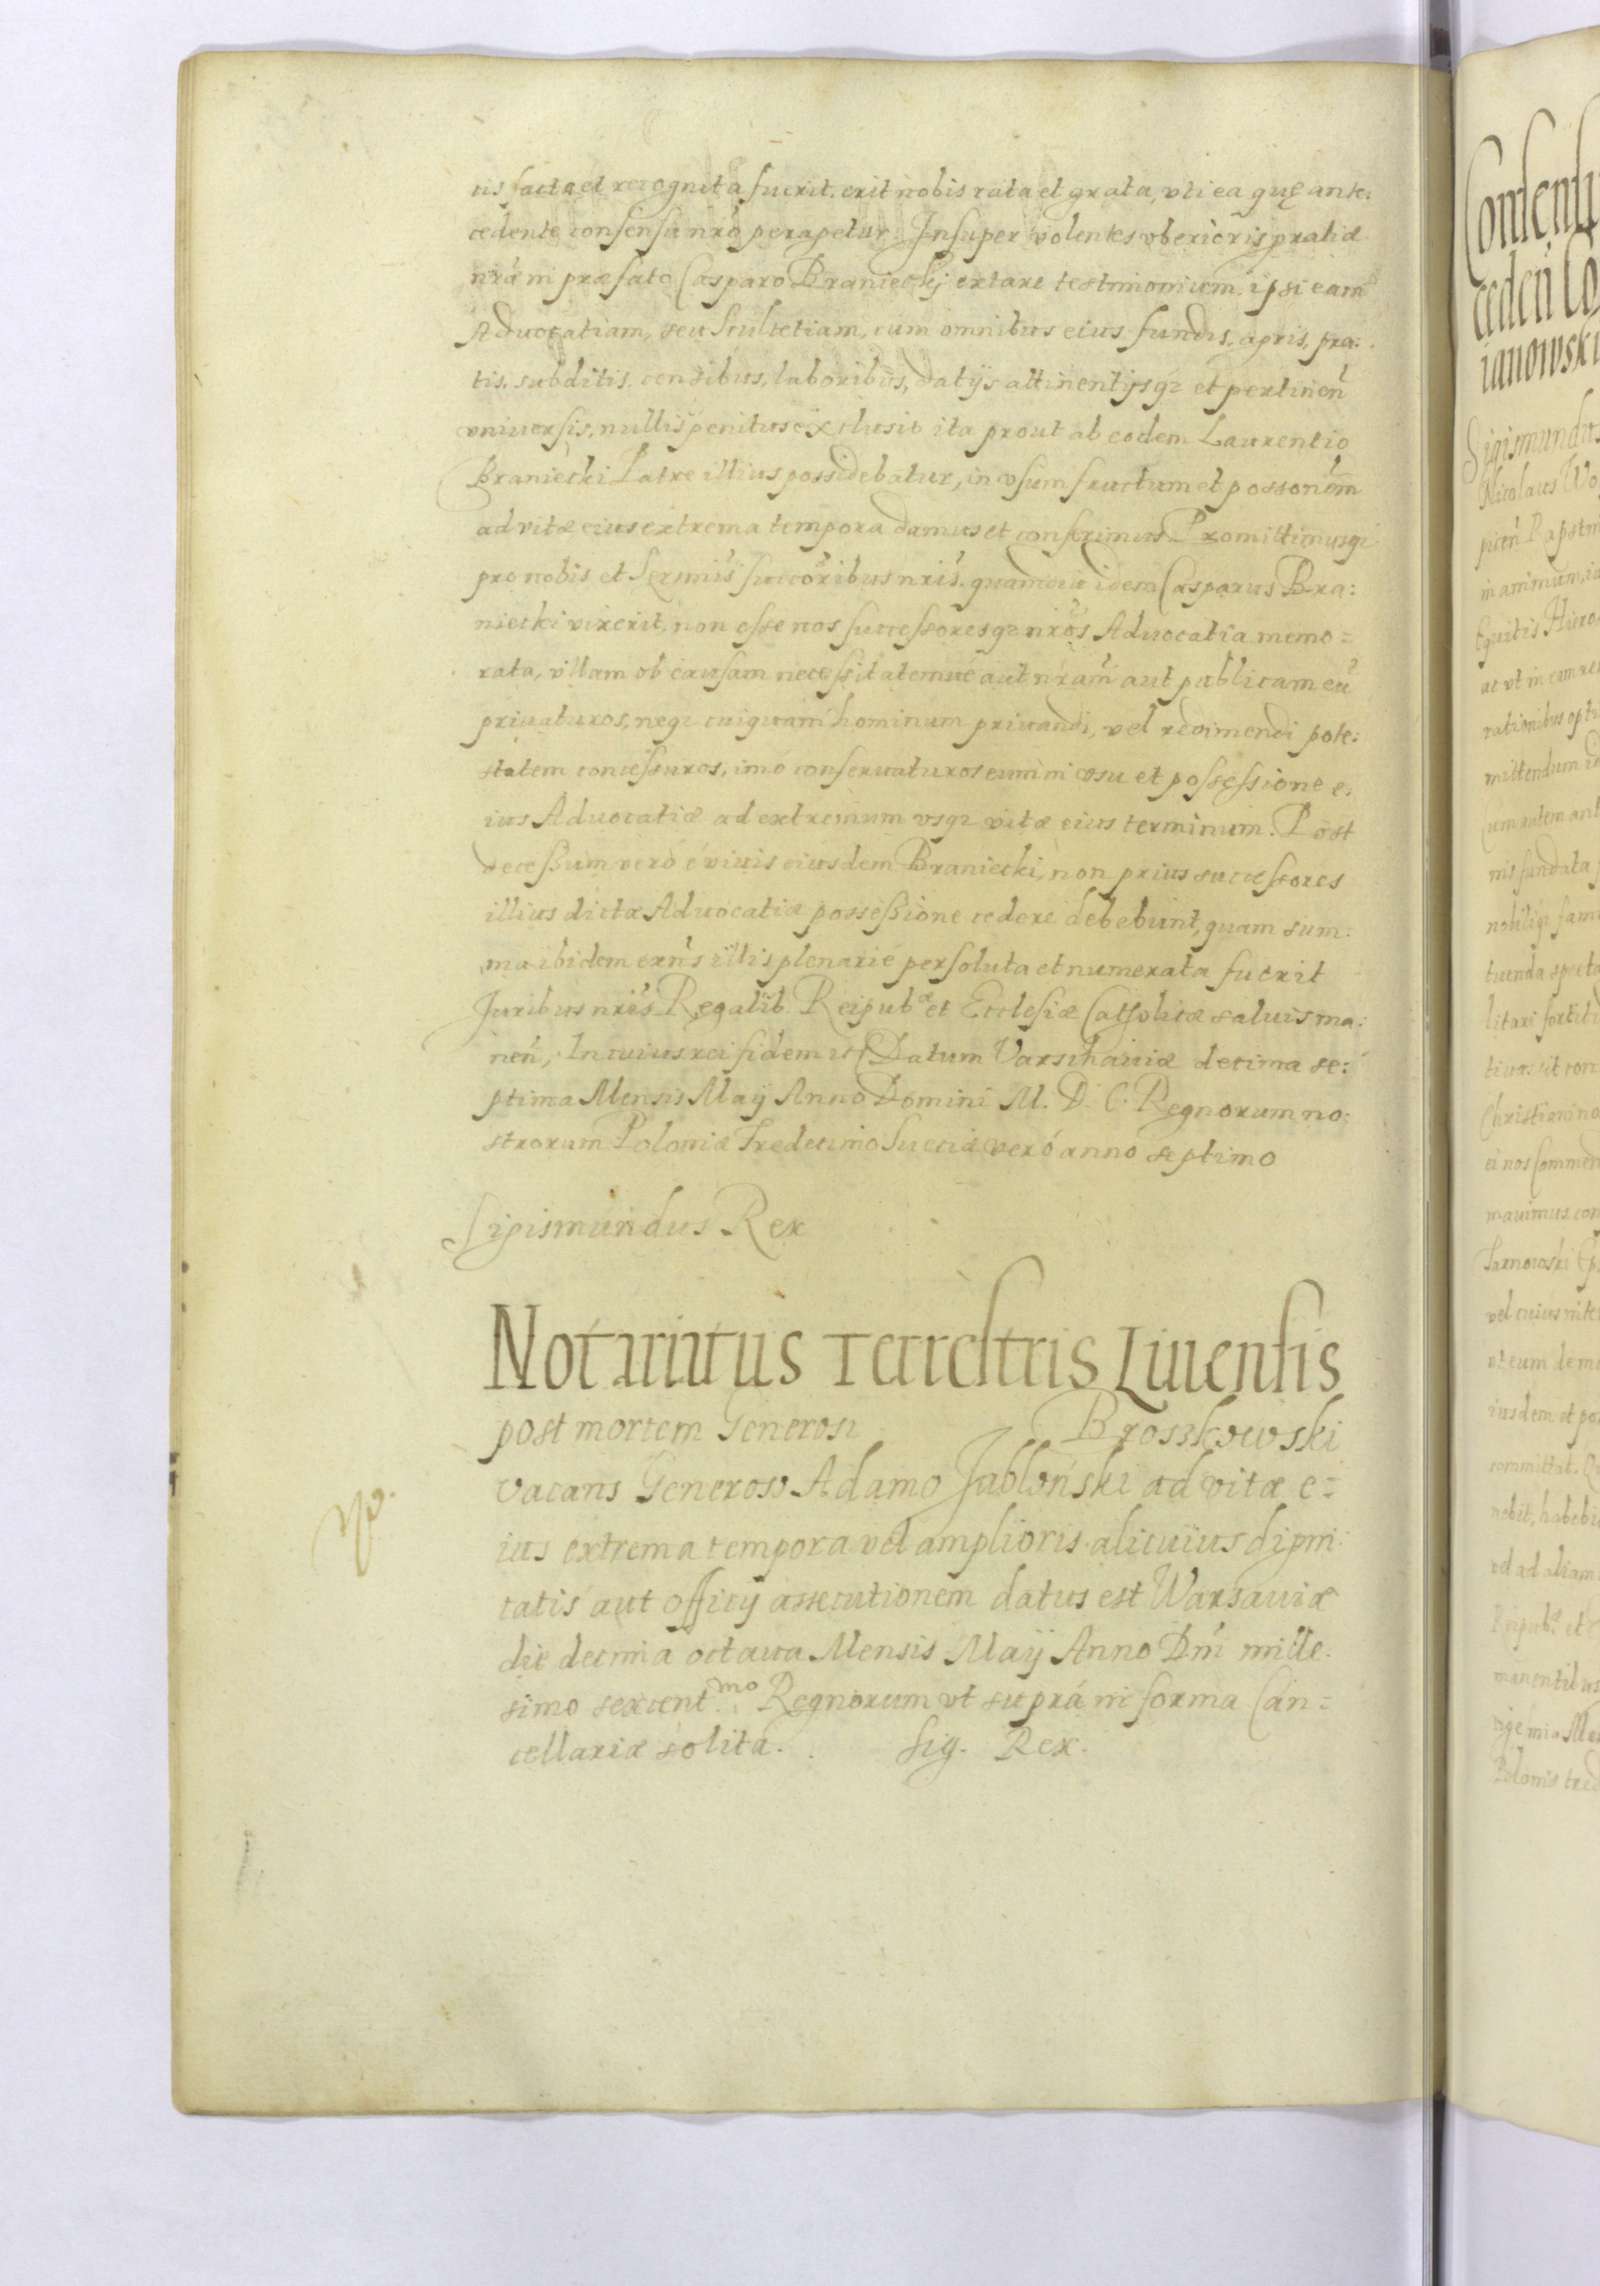 tis facta et recognita fuerit. erit nobis rata et grata, vti ea quę ante:
cedente consensu nr̃o peragetur. Insuper volentes vberioris gratiæ
nr̃æ in præfato Casparo Branieckij extare testimonium. ipsi eam
Aduocatiam, seu Scultetiam, cum omnibus eius fundis, agris, pra:
tis, subditis, censibus, laboribus, datijs attinentijsq; et pertineñ
vniuersis, nullis penitus exclusis ita prout ab eodem Laurentio
Braniecki Patre illius possidebatur, in vsum fructum et possonẽm
ad vitæ eius extrema tempora damus et conferimus. Promittimusq;
pro nobis et Sermis̃ succõribus nris̃. quamdiu idem Casparus Bra:
niecki vixerit, non esse nos successoresq; nrõs Aduocatia memo=
rata, vllam ob causam necessitatemue aut nram̃ aut publicam eũ
priuaturos, neq; cuiquam hominum priuandi, vel redimendi pote:
statem concessuros, imò conseruaturos eum in vsu et possessione e:
ius Aduocatiæ ad extremum vsq; vitæ eius terminum. Post
decessum verò è viuis eiusdem Braniecki, non prius successores
illius dictæ Aduocatiæ possessione cedere debebunt, quam sum:
ma ibidem exñs illis plenariè persoluta et numerata fuerit
Juribus nris̃ Regalib Reipubᵃᵉ et Ecclesiæ Catholicæ saluis ma:
neñ, In cuius rei fidem etc Datum Varschauiæ decima se:
ptima Mensis Maij Anno Domini M. D. C. Regnorum no:
strorum Poloniæ Tredecimo Sueciæ verò anno septimo
Sigismundus Rex
Notariatus Terrestris Liuensis
post mortem Generosi Broszkowski
vacans Generoso Adamo Jabłoński ad vitæ e=
ius extrema tempora vel amplioris alicuius digni
tatis aut officij assecutionem datus est Warsauiæ
die decima octaua Mensis Maij Anno Dnĩ mille.
simo sexcentᵐᵒ. Regnorum vt suprà in forma Can=
cellariæ solita. Sig. Rex.
Consensu
cedeñ
ianowski
Sigismundus
Nicolaus
in animum,
Equitis
ac vt in
rationibus
mittendum
Cum autem ant
nis fundata
tuenda
Christiani no
ei nos Commen
mauimus con
Sarnowski
vel cuius
vt eum
iusdem et po
committat.
nebit, habebi
vel ad aliam
Reipubᵉ et
manentibus
Polonis tred